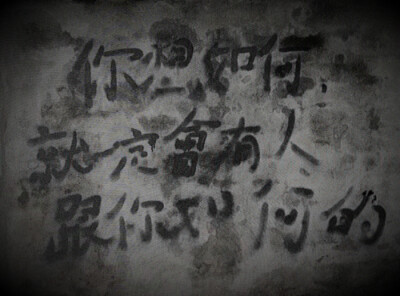 你想如何,
就一定會有人
跟你如何的